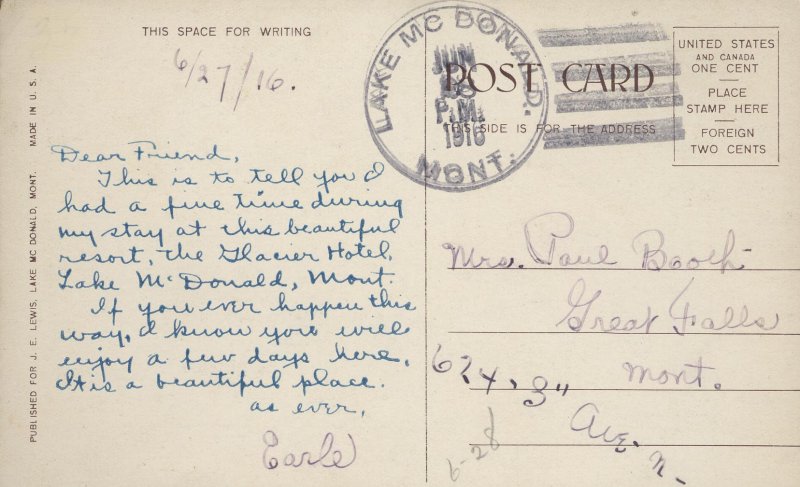 THIS SPACE FOR WRITING
6/27/16.
Dear Friend,
This is to tell you I
had a fine time during
my stay at this beautiful
resort, The Glacier Hotel,
Lake McDonald, Mont.
If you ever happen this
way, I know you will
enjoy a few days here.
It is a beautiful place.
as ever,
Earle
PUBLISHED FOR J. E. LEWIS, LAKE MC DONALD, MONT. MADE IN U. S. A.
LAKE MC DONALD.
JUN
28
P.M.
1916
MONT.
POST CARD
THIS SIDE IS FOR THE ADDRESS
UNITED STATES
AND CANADA
ONE CENT
PLACE
STAMP HERE
FOREIGN
TWO CENTS
Mrs. Paul Booth
Great Falls
Mont.
624, 3"
Ave. n.
6-28